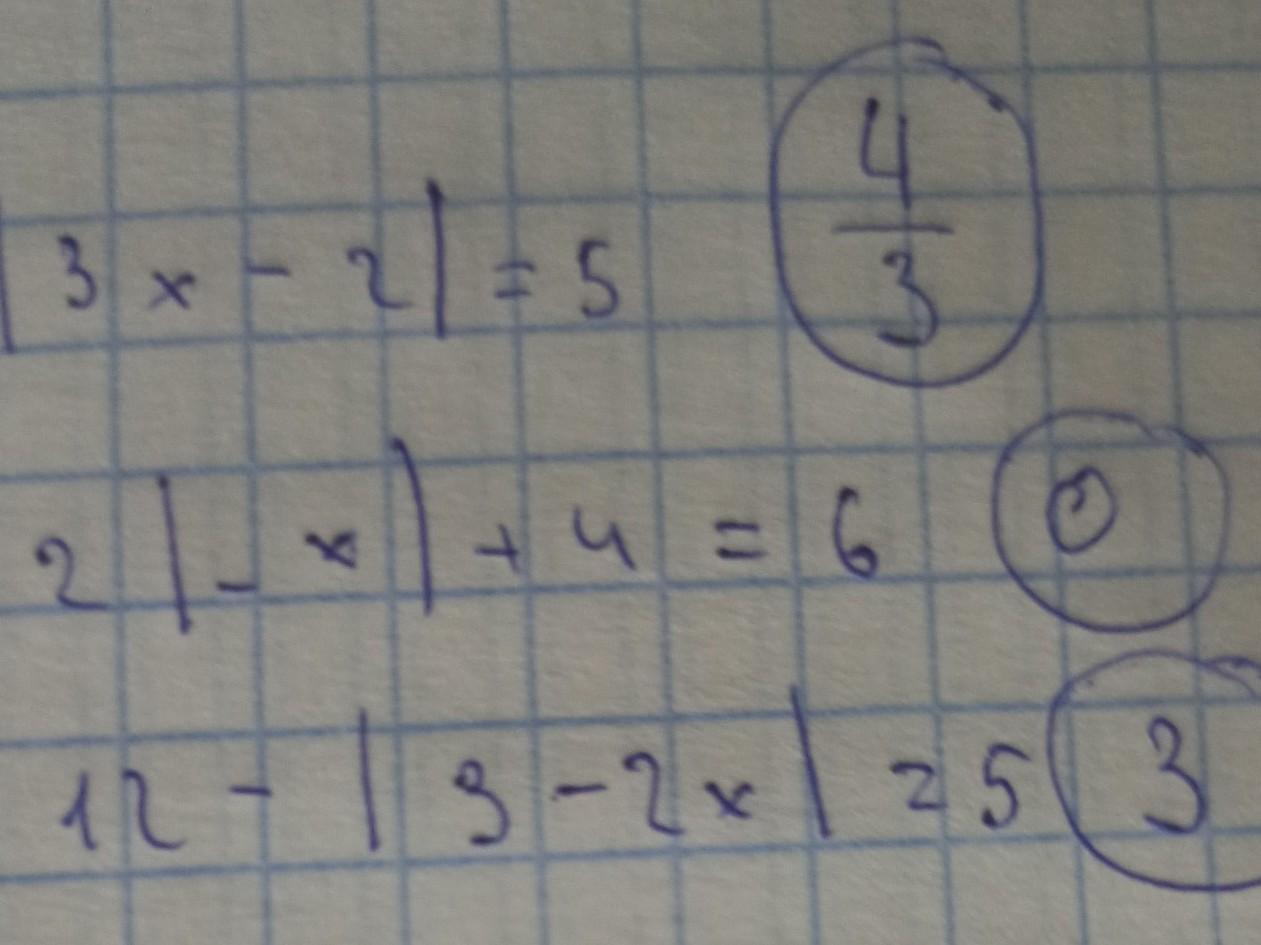 |3x - 2| = 5 4/3
2|-x| + 4 = 6 0
12 - |3 - 2x| = 5 3